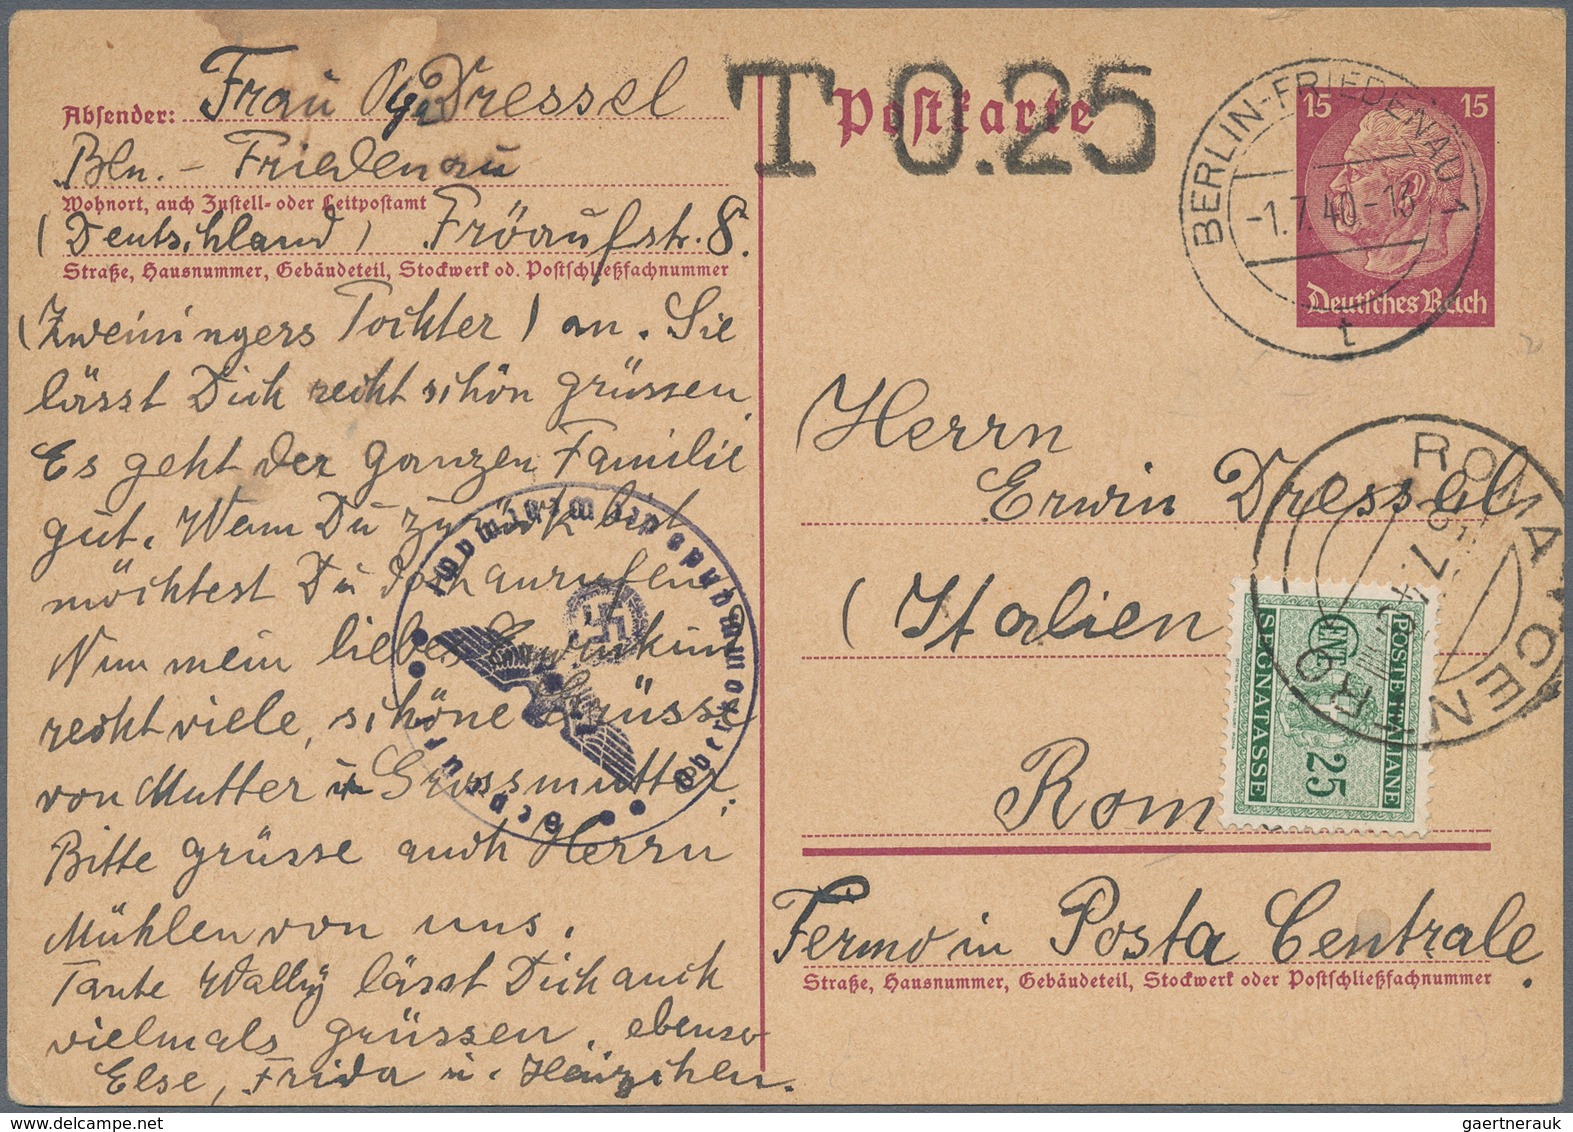 Absender: Frau Olga Dressel
Bln. - Friedenau
Wohnort, auch Zustell- oder Leitpostamt
(Deutschland) Fröaufstr. 8.
Straße, Hausnummer, Gebäudeteil, Stockwerk od. Postschließfachnummer
(Zweiningers Tochter) an. Sie
lässt Dich recht schön grüssen.
Es geht der ganzen Familie
gut. Wenn Du zurück bist
möchtest Du doch anrufen.
Nun mein liebes
recht viele, schöne Grüsse
von Mutter u. Grossmutter.
Bitte grüsse auch Herrn
Mühlen von uns.
Tante Wally lässt Dich auch
vielmals grüssen, ebenso
Else, Frida u. Heinzchen.
Oberkommando der Wehrmacht
Geprüft
T 0.25
Postkarte
BERLIN-FRIEDENAU 1
-1.7.40-13
t
15 15
Deutsches Reich
Herrn
Erwin Dressel
(Italien
Rom
Fermo in Posta Centrale.
Straße, Hausnummer, Gebäudeteil, Stockwerk oder Postschließfachnummer
ROMA CENTRO
POSTE ITALIANE
CENT.
25
SEGNATASSE
gaertnerauk